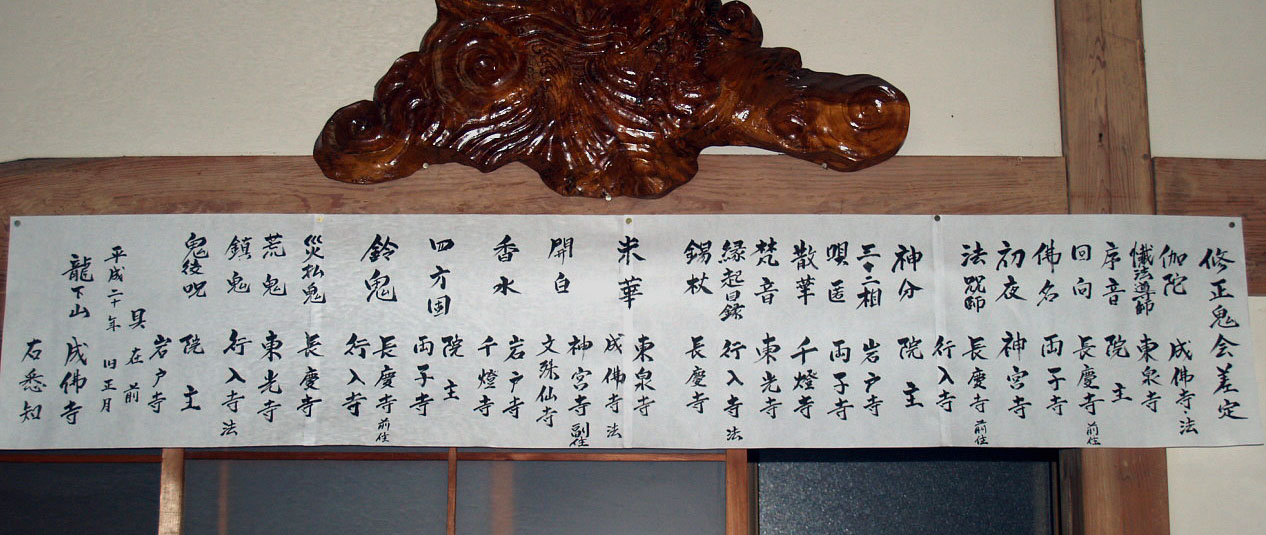 修正鬼会差定
伽陀 成佛寺法
懺法導師 東泉寺
序音 院主
回向 長慶寺前住
佛名 両子寺
初夜 神宮寺
法呪師 長慶寺前住
行入寺
神分 院主
三十二相 岩戸寺
唄匿 両子寺
散華 千燈寺
梵音 東光寺
縁起目録 行入寺法
錫杖 長慶寺
米華 東泉寺
成佛寺法
開白 神宮寺副住
文殊仙寺
香水 岩戸寺
千燈寺
四方固 院主
両子寺
鈴鬼 長慶寺前住
行入寺
災払鬼 長慶寺
荒鬼 東光寺
鎮鬼 行入寺法
鬼後呪 院主
岩戸寺
具在前
平成二十年 旧正月
龍下山 成佛寺
右悉知